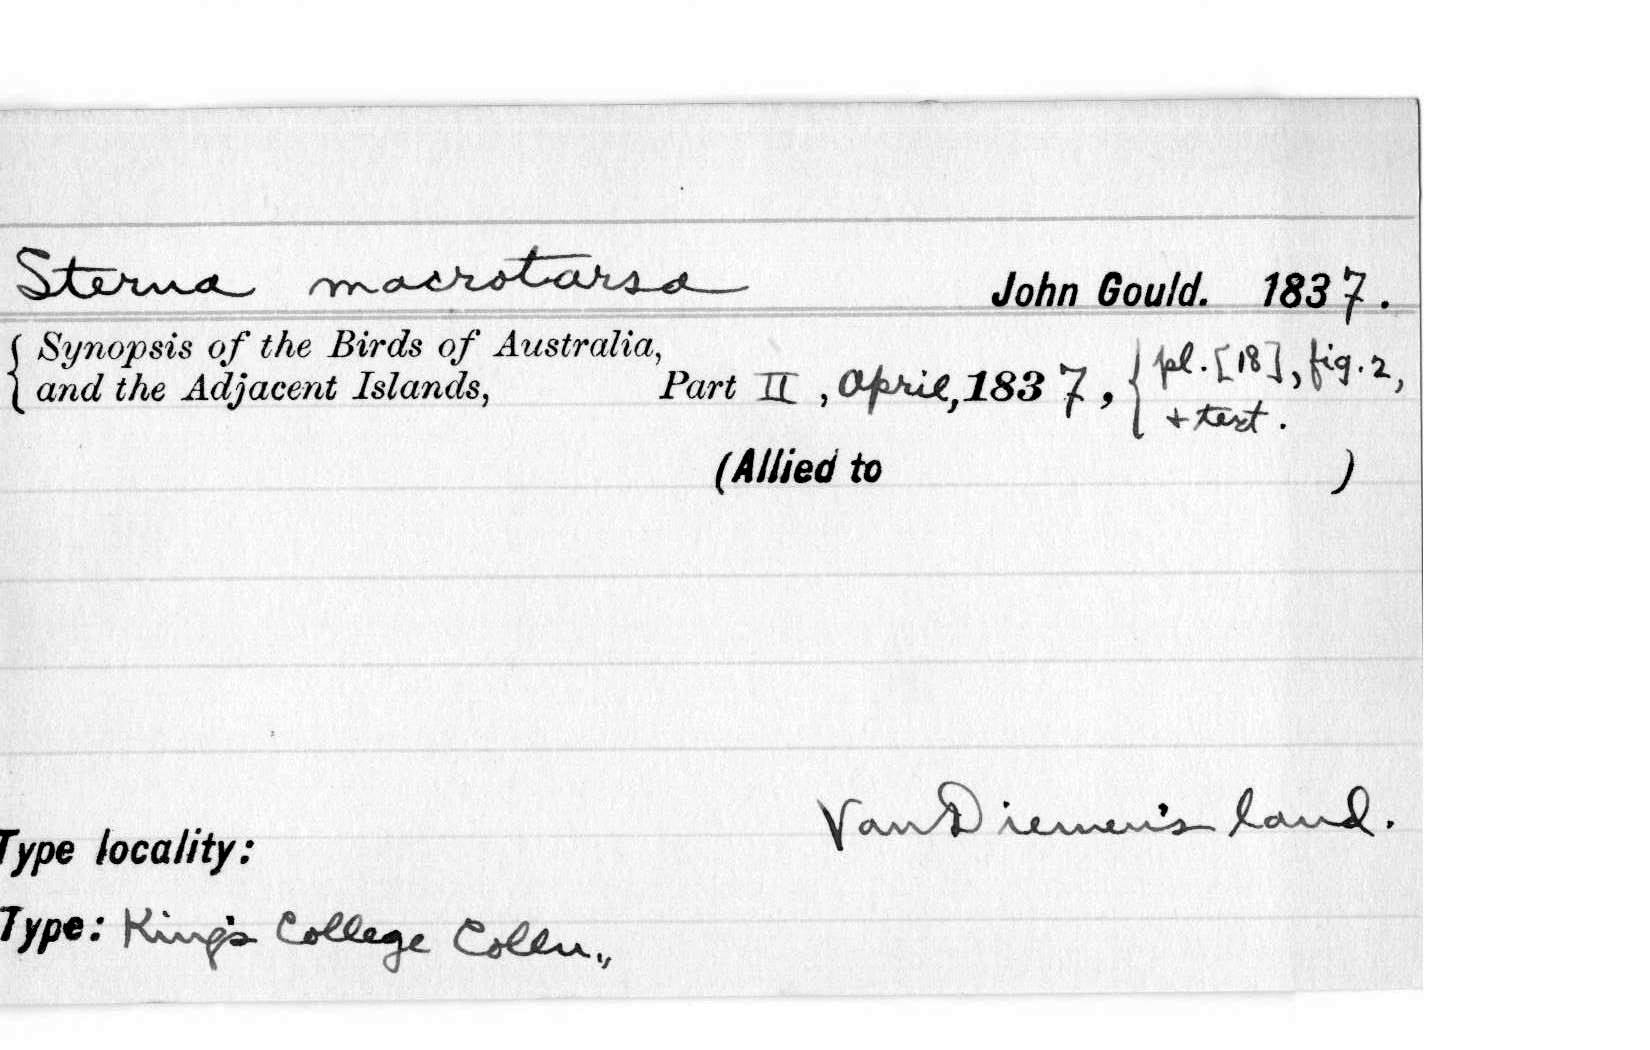 Sterna macrotarsa John Gould. 1837.
{ Synopsis of the Birds of Australia, { pl. [18], fig. 2,
and the Adjacent Islands, Part II, April, 1837, + text.
(Allied to )
Van Diemen's land.
Type locality:
Type: King's College Colln.,,